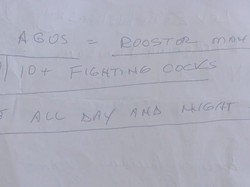 AGUS = ROOSTOR MAN
10+ FIGHTING COCKS
ALL DAY AND NIGHT